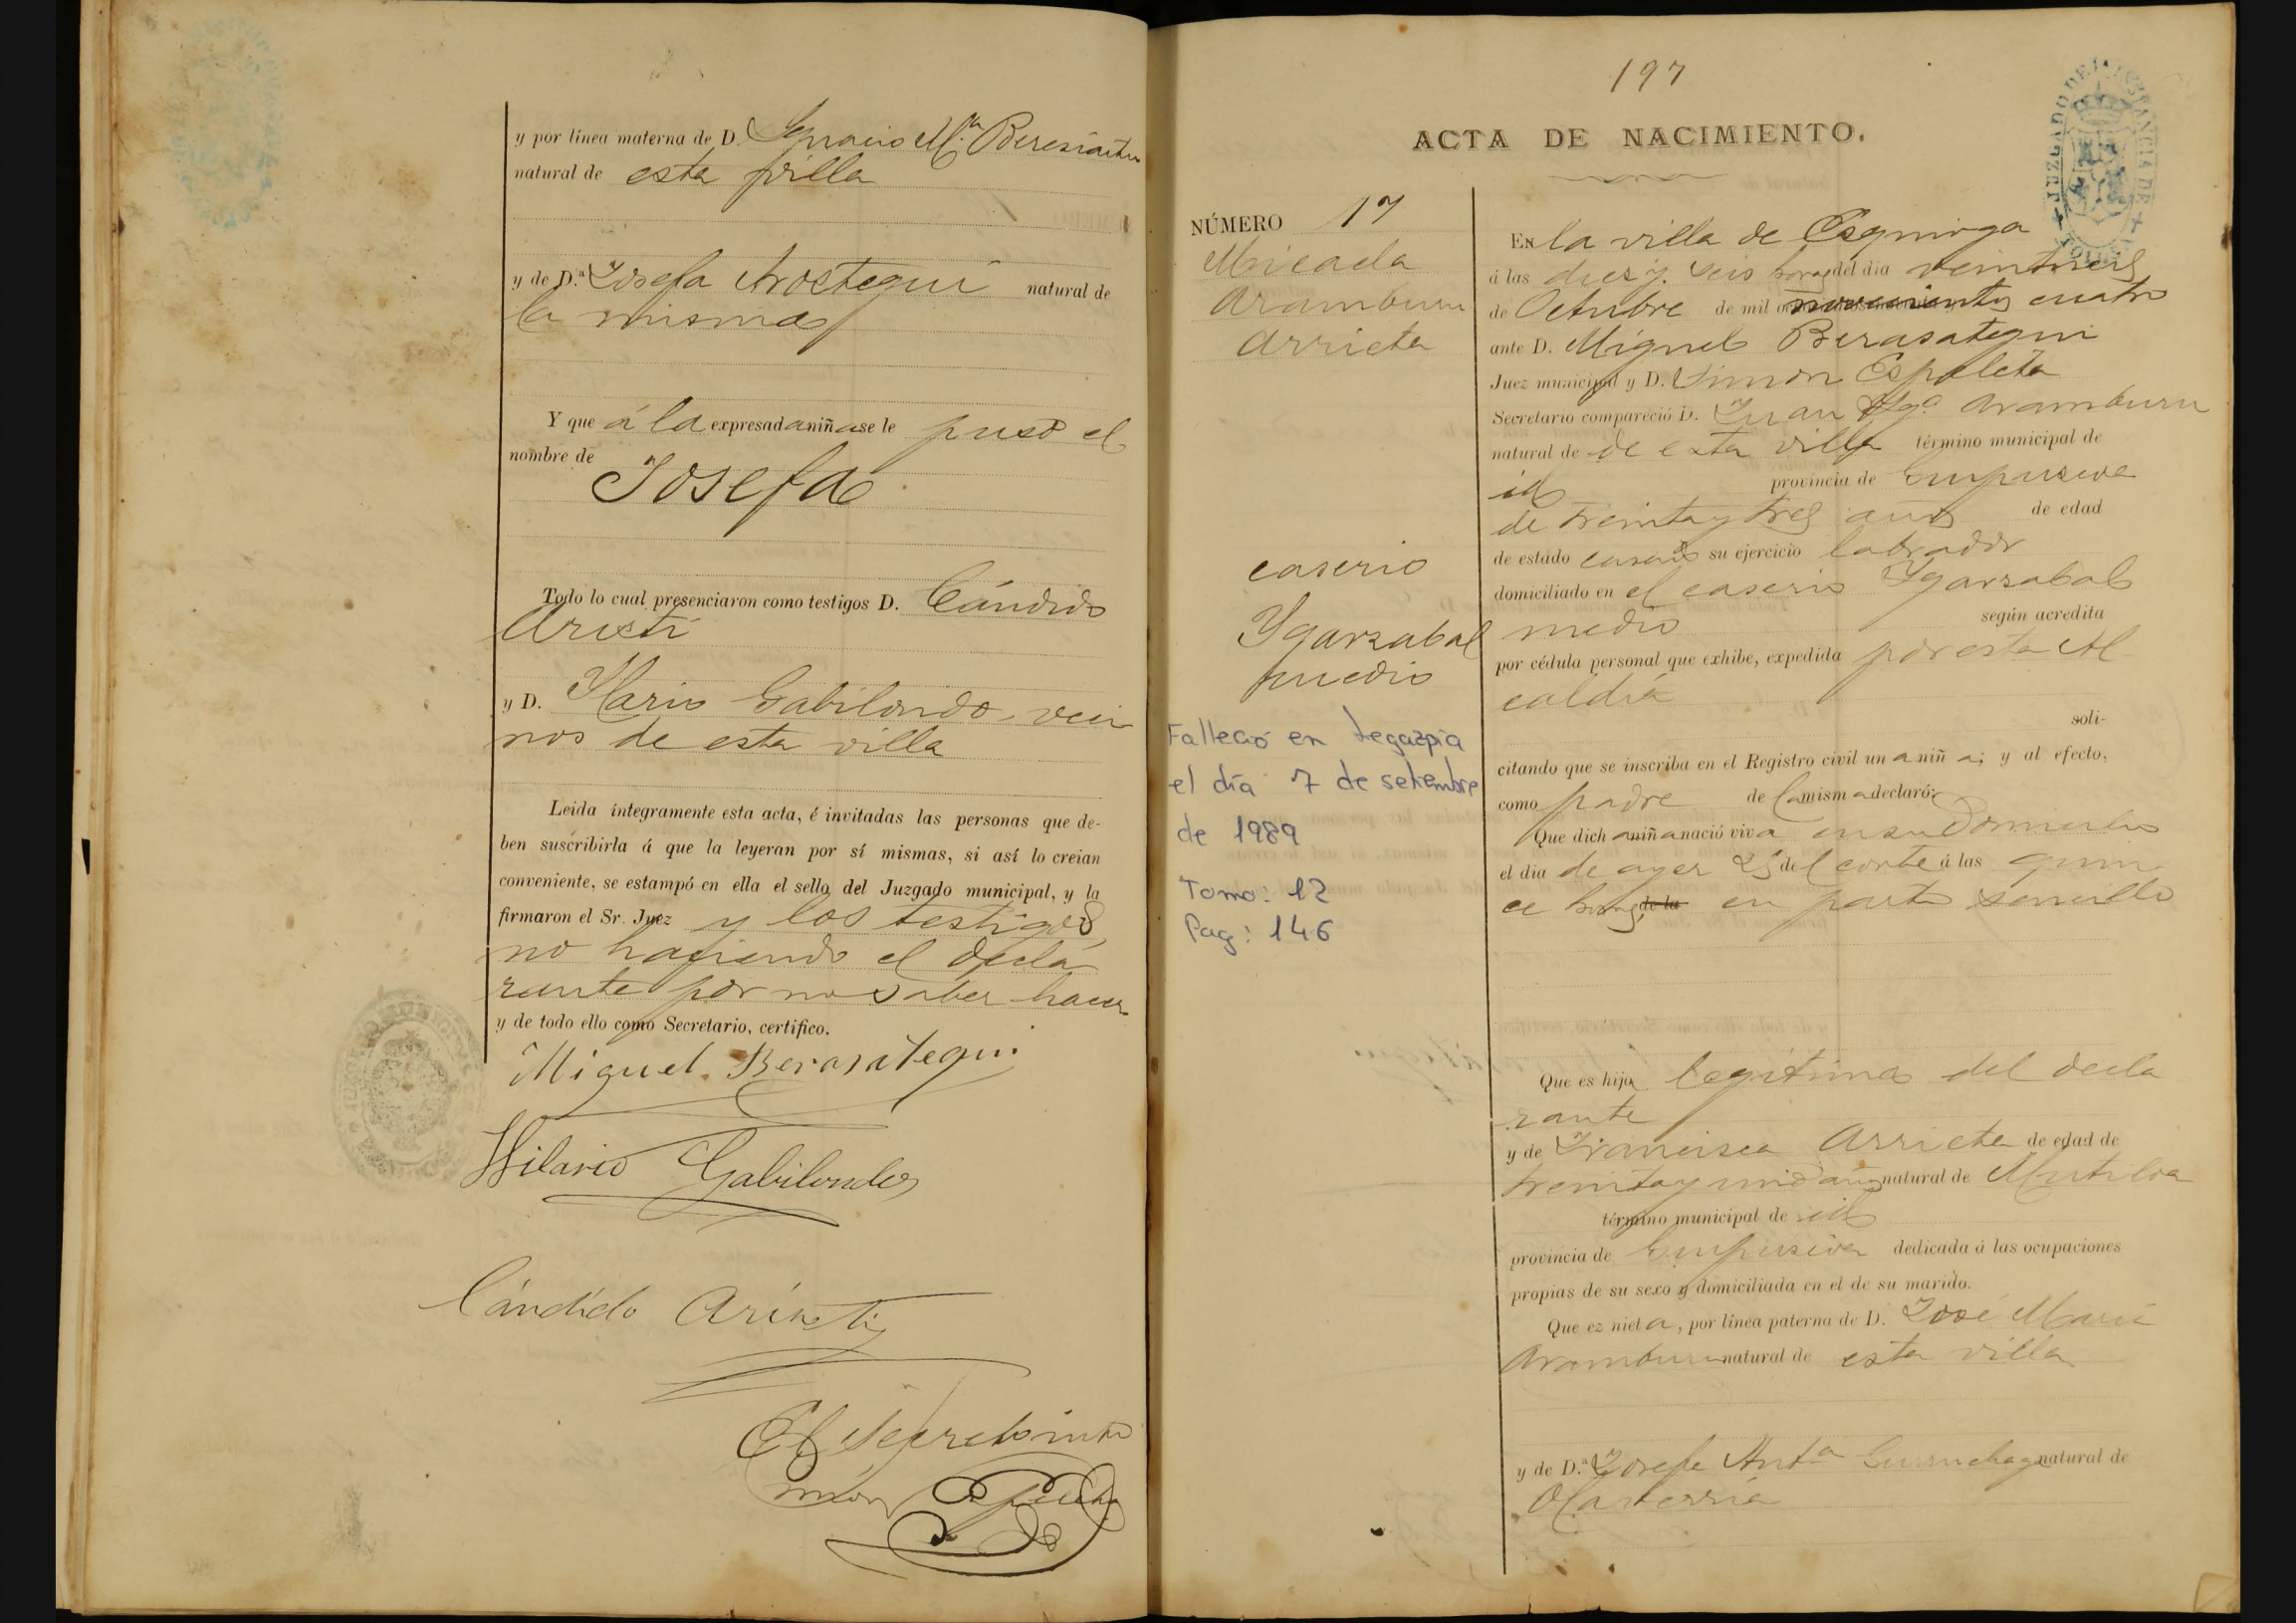 y por línea materna de D. Ignacio M.ª Beresiartu
natural de esta villa
y de D.ª Josefa Arostegui natural de
la misma
Y que á la expresada niña se le puso el
nombre de Josefa
Todo lo cual presenciaron como testigos D. Cándido
Aristi
y D. Ylario Gabilondo, veci
nos de esta villa
Leida íntegramente esta acta, é invitadas las personas que de-
ben suscribirla á que la leyeran por sí mismas, si así lo creian
conveniente, se estampó en ella el sello del Juzgado municipal, y la
firmaron el Sr. Juez y los testigos,
no haciendo el decla
rante por no saber hacer
y de todo ello como Secretario, certifico.
Miguel Berasategui
Hilario Gabilondo
Cándido Aristi
El Secretario
197
ACTA DE NACIMIENTO.
NÚMERO 17
Micaela
Aramburu
Arrieta
caserio
Ygarzabal
medio
Falleció en Legazpia
el día 7 de setiembre
de 1989
Tomo: 12
Pag: 146
En la villa de Ezquioga
á las diez y seis horas del dia veintiseis
de Octubre de mil novecientos cuatro
ante D. Miguel Berasategui
Juez municipal y D. Simon Espeleta
Secretario compareció D. Juan Ygº Aramburu
natural de de esta villa término municipal de
id provincia de Guipuzcoa
de treinta y tres años de edad
de estado casado su ejercicio labrador
domiciliado en el caserio Ygarzabal
medio según acredita
por cédula personal que exhibe, expedida por esta Al
caldía
soli-
citando que se inscriba en el Registro civil una niña; y al efecto,
como padre de la misma declaró:
Que dicha niña nació viva en su domicilio
el dia de ayer 25 del corte á las quin
ce horas de la en parto sencillo
Que es hija legitima del decla
rante
y de Francisca Arrieta de edad de
treinta y un años natural de Mutiloa
término municipal de id
provincia de Guipuzcoa dedicada á las ocupaciones
propias de su sexo y domiciliada en el de su marido.
Que ez nieta, por línea paterna de D. José Maria
Aramburu natural de esta villa
y de D.ª Josefa Antª Gurruchaga natural de
Olaberria